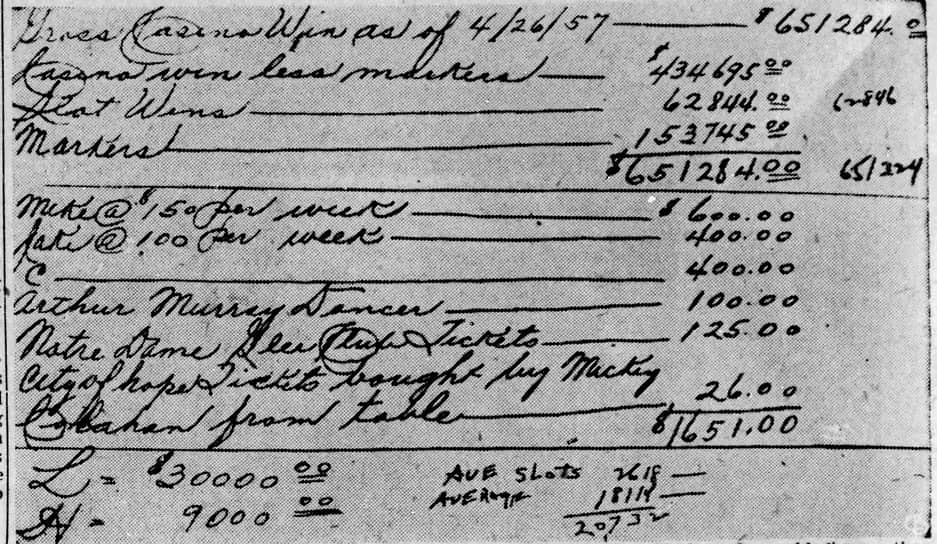 Gross Casino Win as of 4/26/57 $651284.00
Casino win less markers $434695.00
Slot Wins 62844.00 62846
Markers 153745.00
$651284.00 651284
Mike @ $150 per week $600.00
Jake @ 100 per week 400.00
C 400.00
Arthur Murray Dancer 100.00
Notre Dame Glee Club Tickets 125.00
City of hope Tickets bought by Mickey
from table 26.00
$1651.00
L = $30000.00 AVE SLOTS 2618
H - 9000.00 AVERAGE 18114
20732